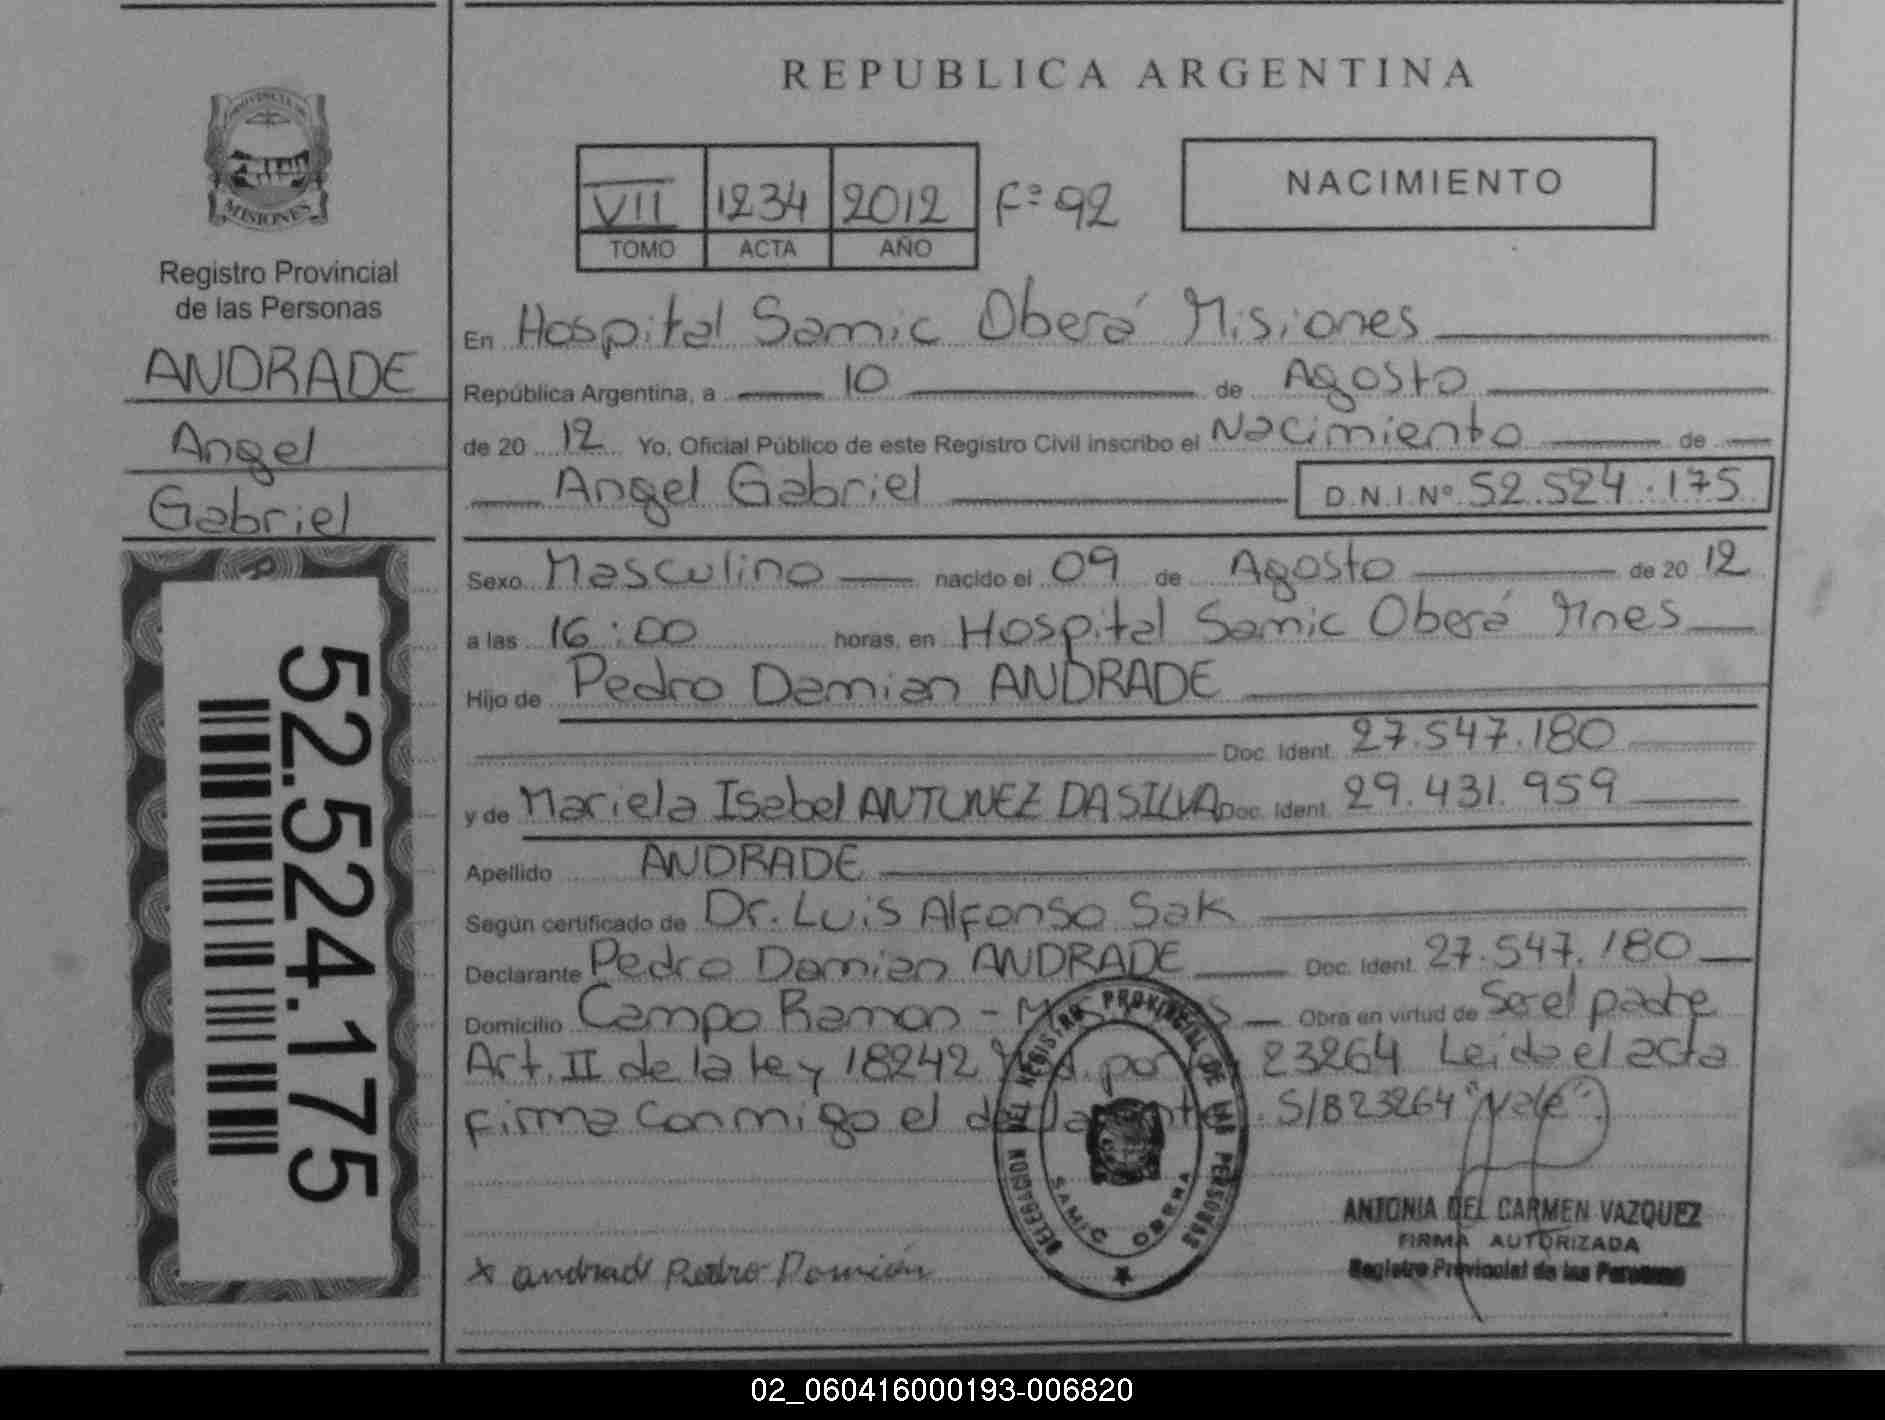 REPUBLICA ARGENTINA
PROVINCIA DE
MISIONES
Registro Provincial
de las Personas
ANDRADE
Angel
Gabriel
52.524.175
VII 1234 2012 Fº 92
TOMO ACTA AÑO
NACIMIENTO
En Hospital Samic Oberá Misiones
República Argentina, a 10 de Agosto
de 20 12 Yo, Oficial Público de este Registro Civil inscribo el Nacimiento de
Angel Gabriel D.N.I.Nº 52.524.175
Sexo Masculino nacido el 09 de Agosto de 20 12
a las 16:00 horas, en Hospital Samic Oberá Mnes
Hijo de Pedro Damian ANDRADE
Doc. Ident. 27.547.180
y de Mariela Isabel ANTUNEZ DA SILVA Doc. Ident. 29.431.959
Apellido ANDRADE
Según certificado de Dr. Luis Alfonso Sak
Declarante Pedro Damian ANDRADE Doc. Ident. 27.547.180
Domicilio Campo Ramon - Obra en virtud de Ser el padre
Art. II de la ley 18242 por 23264 Leida el acta
firma conmigo el declarante. S/B 23264 "Vale".
DELEGACION DEL REGISTRO PROVINCIAL DE LAS PERSONAS
SAMIC OBERA
ANTONIA DEL CARMEN VAZQUEZ
FIRMA AUTORIZADA
Registro Provincial de las Personas
x andrade Pedro Damián
02_060416000193-006820